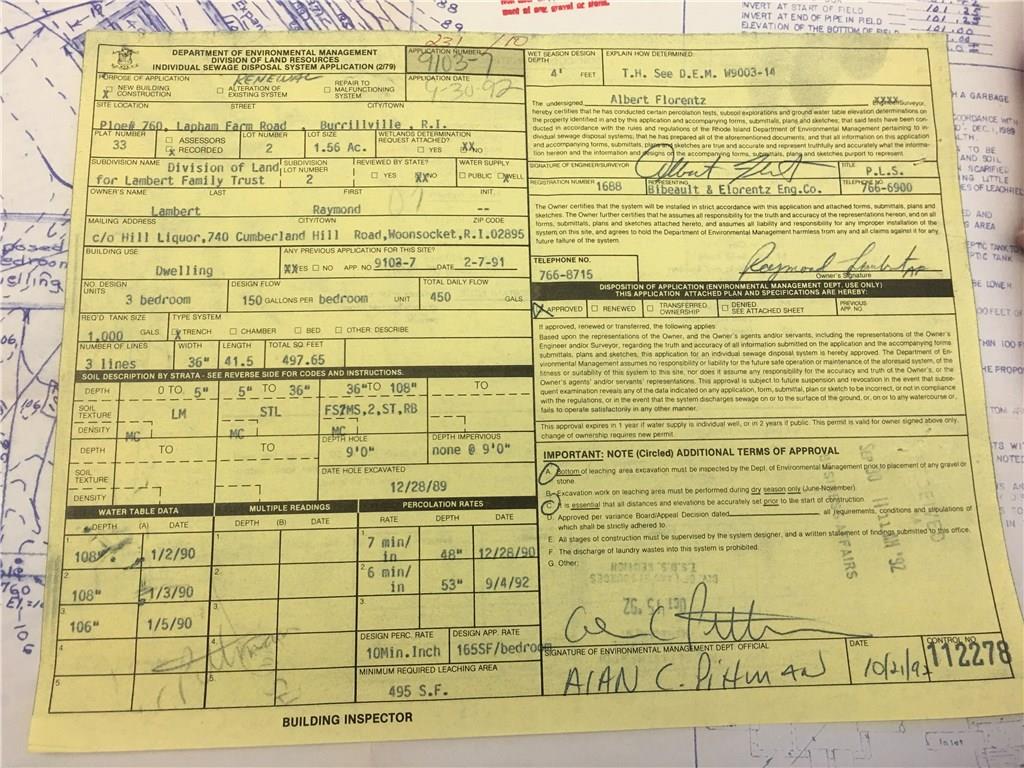 DEPARTMENT OF ENVIRONMENTAL MANAGEMENT
DIVISION OF LAND RESOURCES
INDIVIDUAL SEWAGE DISPOSAL SYSTEM APPLICATION (2/79)
APPLICATION NUMBER
9103-7
PURPOSE OF APPLICATION
RENEWAL
X NEW BUILDING CONSTRUCTION
☐ ALTERATION OF EXISTING SYSTEM
☐ REPAIR TO MALFUNCTIONING SYSTEM
APPLICATION DATE
9-30-92
SITE LOCATION STREET CITY/TOWN
Ploe# 760, Lapham Farm Road , Burrillville , R.I.
PLAT NUMBER
33
☐ ASSESSORS
X RECORDED
LOT NUMBER
2
LOT SIZE
1.56 Ac.
WETLANDS DETERMINATION REQUEST ATTACHED?
☐ YES XX NO
SUBDIVISION NAME
Division of Land
for Lambert Family Trust
SUBDIVISION LOT NUMBER
2
REVIEWED BY STATE?
☐ YES XX NO
WATER SUPPLY
☐ PUBLIC X WELL
OWNER'S NAME LAST FIRST INIT.
Lambert Raymond --
MAILING ADDRESS CITY/TOWN ZIP CODE
c/o Hill Liquor,740 Cumberland Hill Road,Woonsocket,R.I.02895
BUILDING USE
Dwelling
ANY PREVIOUS APPLICATION FOR THIS SITE?
XXYES ☐ NO APP. NO. 9103-7 DATE 2-7-91
NO. DESIGN UNITS
3 bedroom
DESIGN FLOW
150 GALLONS PER bedroom UNIT
TOTAL DAILY FLOW
450 GALS.
REQ'D TANK SIZE
1,000 GALS.
TYPE SYSTEM
X TRENCH ☐ CHAMBER ☐ BED ☐ OTHER: DESCRIBE
NUMBER OF LINES
3 lines
WIDTH
36"
LENGTH
41.5
TOTAL SQ. FEET
497.65
SOIL DESCRIPTION BY STRATA - SEE REVERSE SIDE FOR CODES AND INSTRUCTIONS.
DEPTH 0 TO 5" 5" TO 36" 36" TO 108" TO
SOIL TEXTURE LM STL FS7MS,2,ST,RB
DENSITY MC MC MC
DEPTH TO TO
DEPTH HOLE
9'0"
DEPTH IMPERVIOUS
none @ 9'0"
SOIL TEXTURE
DENSITY
DATE HOLE EXCAVATED
12/28/89
WATER TABLE DATA MULTIPLE READINGS PERCOLATION RATES
DEPTH (A) DATE DEPTH (B) DATE RATE DEPTH DATE
1. 108" 1/2/90 1. 7 min/in 48" 12/28/90
2. 108" 1/3/90 2. 6 min/in 53" 9/4/92
3. 106" 1/5/90 3. 3.
4. 4.
5. 5.
DESIGN PERC. RATE
10Min.Inch
DESIGN APP. RATE
165SF/bedroom
MINIMUM REQUIRED LEACHING AREA
495 S.F.
BUILDING INSPECTOR
WET SEASON DESIGN DEPTH
4' FEET
EXPLAIN HOW DETERMINED:
T.H. See D.E.M. W9003-14
The undersigned, Albert Florentz XXXX Engineer/Surveyor,
hereby certifies that he has conducted certain percolation tests, subsoil explorations and ground water table elevation determinations on
the property identified in and by this application and accompanying forms, submittals, plans and sketches, that said tests have been con-
ducted in accordance with the rules and regulations of the Rhode Island Department of Environmental Management pertaining to in-
dividual sewage disposal systems; that he has prepared all of the aforementioned documents, and that all information on this application
and accompanying forms, submittals, plans and sketches are true and accurate and represent truthfully and accurately what the informa-
tion herein and the information and designs on the accompanying forms, submittals, plans and sketches purport to represent.
SIGNATURE OF ENGINEER/SURVEYOR
TITLE
P.L.S.
REGISTRATION NUMBER
1688
REPRESENTING
Bibeault & Florentz Eng.Co.
TELEPHONE NO.
766-6900
The Owner certifies that the system will be installed in strict accordance with this application and attached forms, submittals, plans and
sketches. The Owner further certifies that he assumes all responsibility for the truth and accuracy of the representations hereon, and on all
forms, submittals, plans and sketches attached hereto, and assumes all liability and responsibility for any improper installation of the
system on this site, and agrees to hold the Department of Environmental Management harmless from any and all claims against it for any
future failure of the system.
TELEPHONE NO.
766-8715
Owner's Signature
DISPOSITION OF APPLICATION (ENVIRONMENTAL MANAGEMENT DEPT. USE ONLY)
THIS APPLICATION ATTACHED PLAN AND SPECIFICATIONS ARE HEREBY:
X APPROVED ☐ RENEWED ☐ TRANSFERRED OWNERSHIP ☐ DENIED SEE ATTACHED SHEET PREVIOUS APP. NO.
If approved, renewed or transferred, the following applies:
Based upon the representations of the Owner, and the Owner's agents and/or servants, including the representations of the Owner's
Engineer and/or Surveyor, regarding the truth and accuracy of all information submitted on the application and the accompanying forms,
submittals, plans, sketches, this application for an individual sewage disposal system is hereby approved. The Department of En-
vironmental Management assumes no responsibility or liability for the future safe operation or maintenance of the aforesaid system, of the
fitness or suitability of this system to this site, nor does it assume any responsibility for the accuracy and truth of the Owner's, or the
Owner's agents' and/or servants' representations. This approval is subject to future suspension and revocation in the event that subse-
quent examination reveals any of the data indicated on any application, form, submittal, plan or sketch to be incorrect, or not in compliance
with the regulations, or in the event the system discharges sewage on or to the surface of the ground, or, on or to any watercourse or,
fails to operate satisfactorily in any other manner.
This approval expires in 1 year if water supply is individual well, or in 2 years if public. This permit is valid for owner signed above only,
change of ownership requires new permit.
IMPORTANT: NOTE (Circled) ADDITIONAL TERMS OF APPROVAL
A. Bottom of leaching area excavation must be inspected by the Dept. of Environmental Management prior to placement of any gravel or
stone.
B. Excavation work on leaching area must be performed during dry season only (June-November).
C. It is essential that all distances and elevations be accurately set prior to the start of construction.
D. Approved per variance Board/Appeal Decision dated all requirements, conditions and stipulations of
which shall be strictly adhered to.
E. All stages of construction must be supervised by the system designer, and a written statement of findings submitted to this office.
F. The discharge of laundry wastes into this system is prohibited.
G. Other:
SIGNATURE OF ENVIRONMENTAL MANAGEMENT DEPT. OFFICIAL
ALAN C. PITHMAN
DATE
10/21/92
CONTROL NO.
112278
INVERT AT START OF FIELD
INVERT AT END OF PIPE IN FIELD
ELEVATION OF THE BOTTOM OF FIELD